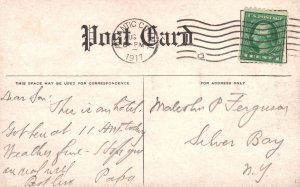 Post Card
ATLANTIC CITY
PM
1917
THIS SPACE MAY BE USED FOR CORRESPONDENCE
FOR ADDRESS ONLY
Dear Son,
This is an hotel.
Got here at 11 today
Weather fine - I hope you
are real well
Papa
Malcolm P Ferguson
Silver Bay
N Y